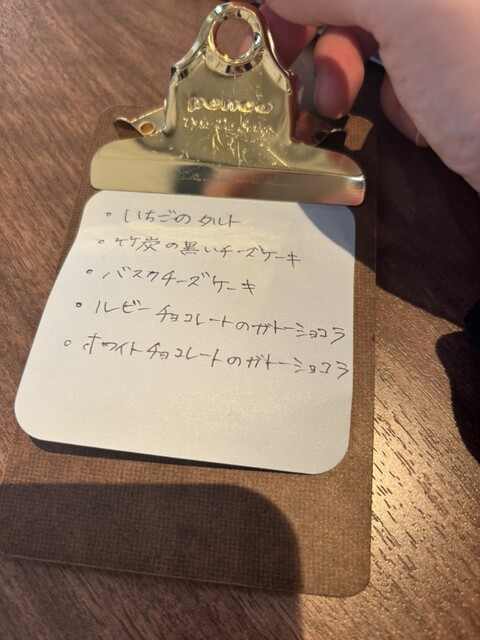 penco
• いちごのタルト
• 竹炭の黒いチーズケーキ
• バスクチーズケーキ
• ルビーチョコレートのガトーショコラ
• ホワイトチョコレートのガトーショコラ